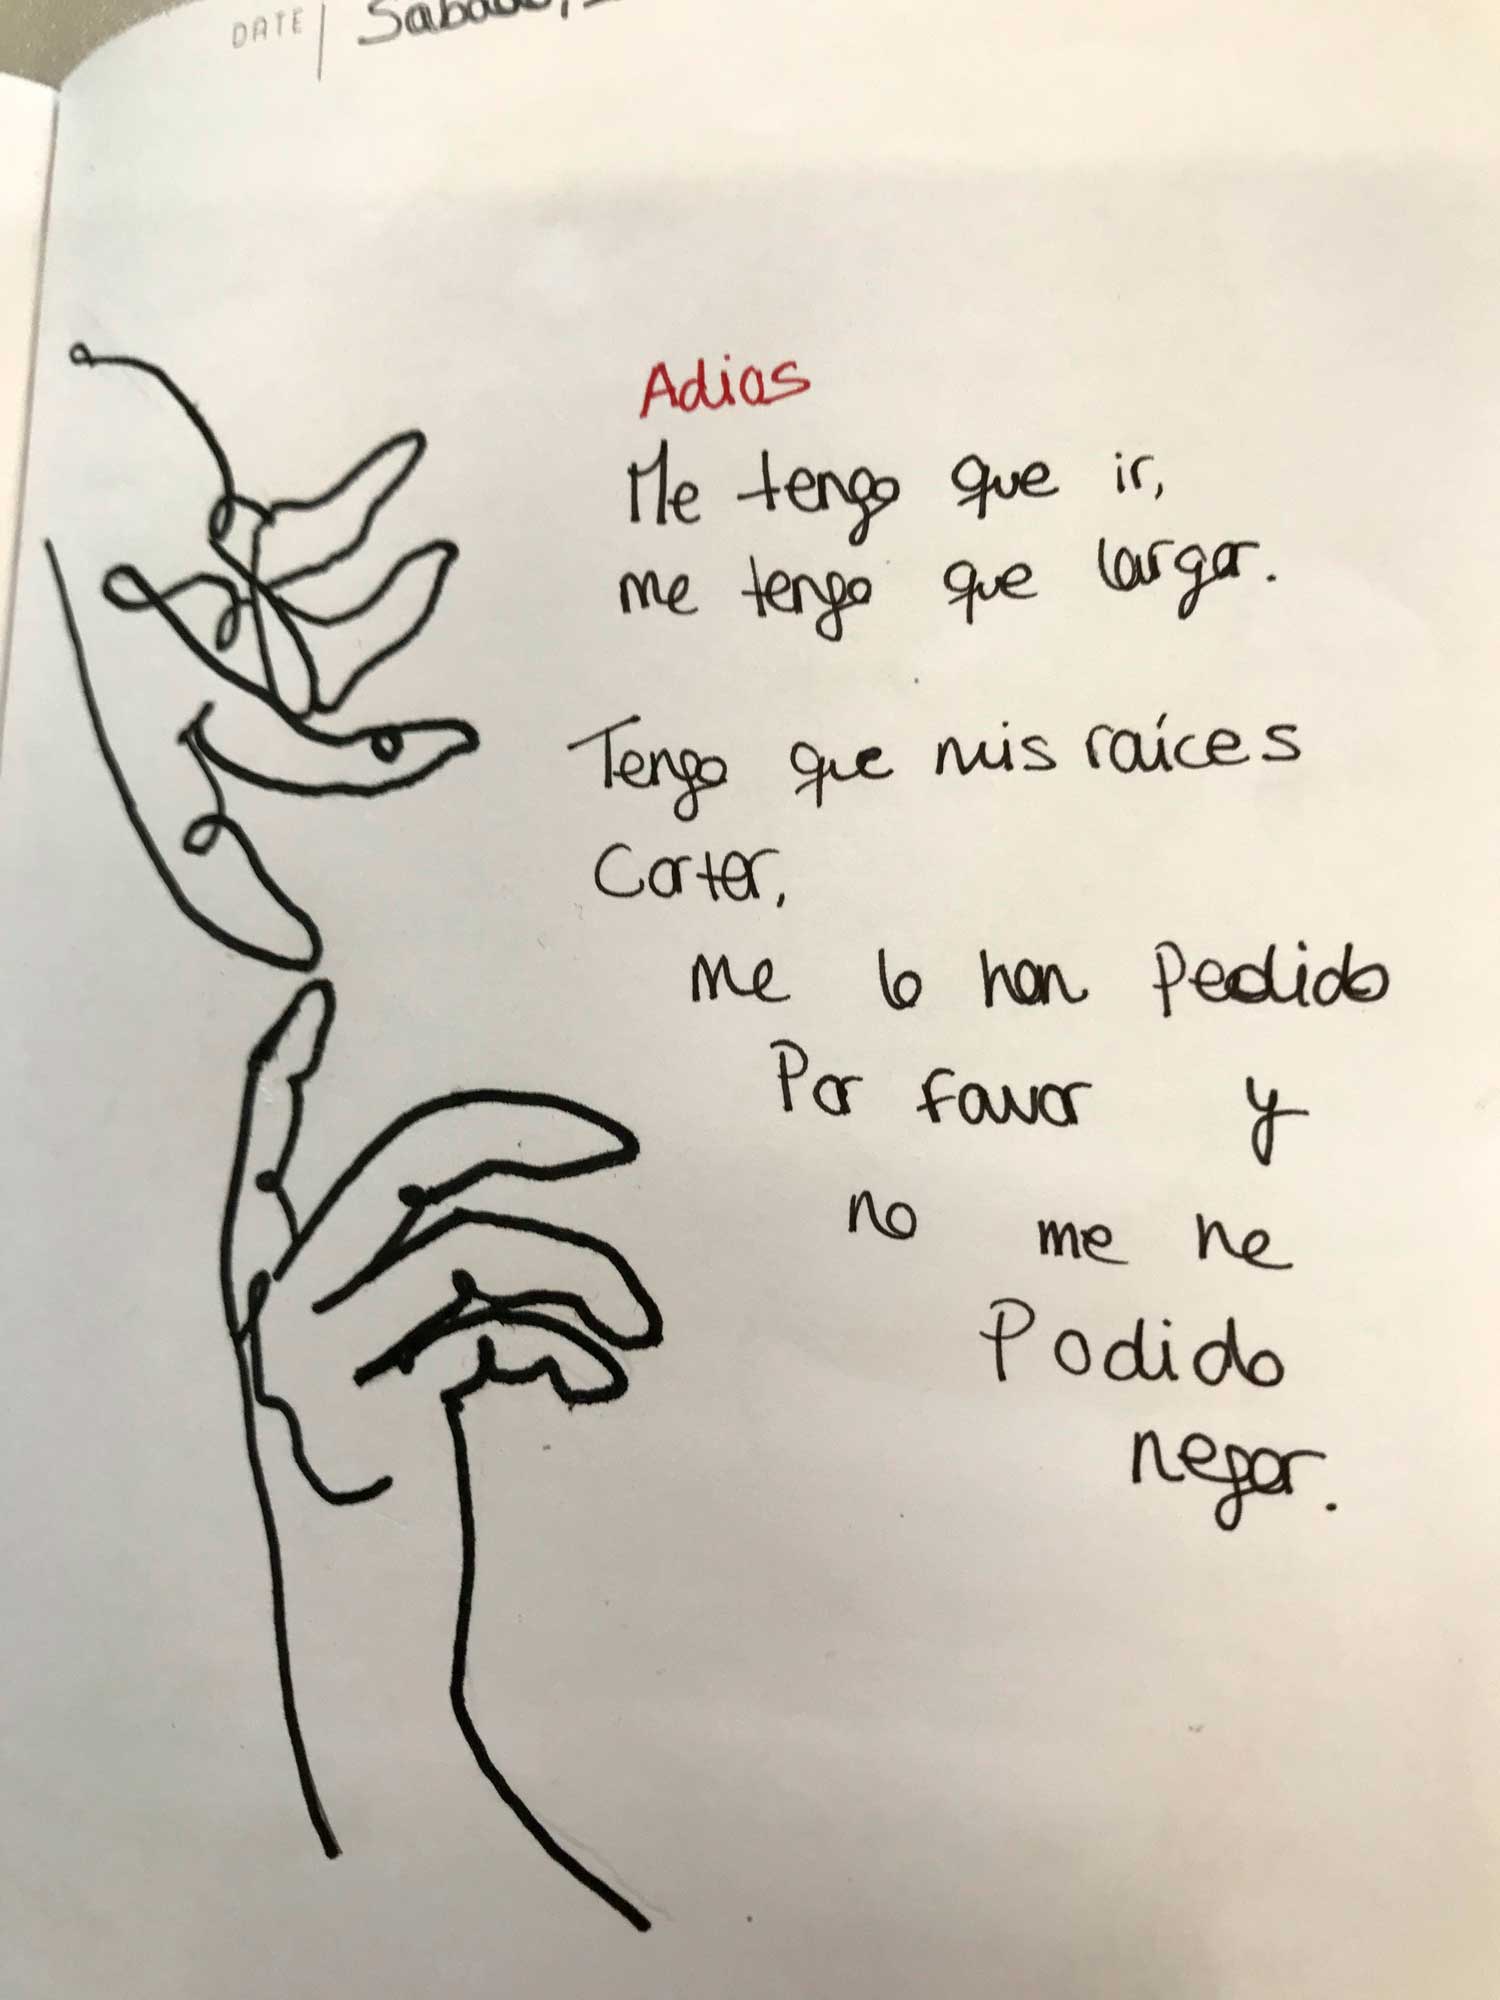 DATE
Sabado,
Adios
Me tengo que ir,
me tengo que largar.
Tengo que mis raíces
Cortar,
me lo han Pedido
Por favor y
no me he
Podido
negar.